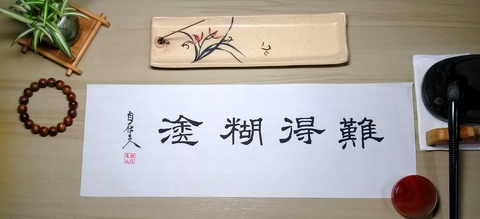 難得糊塗
自在夫